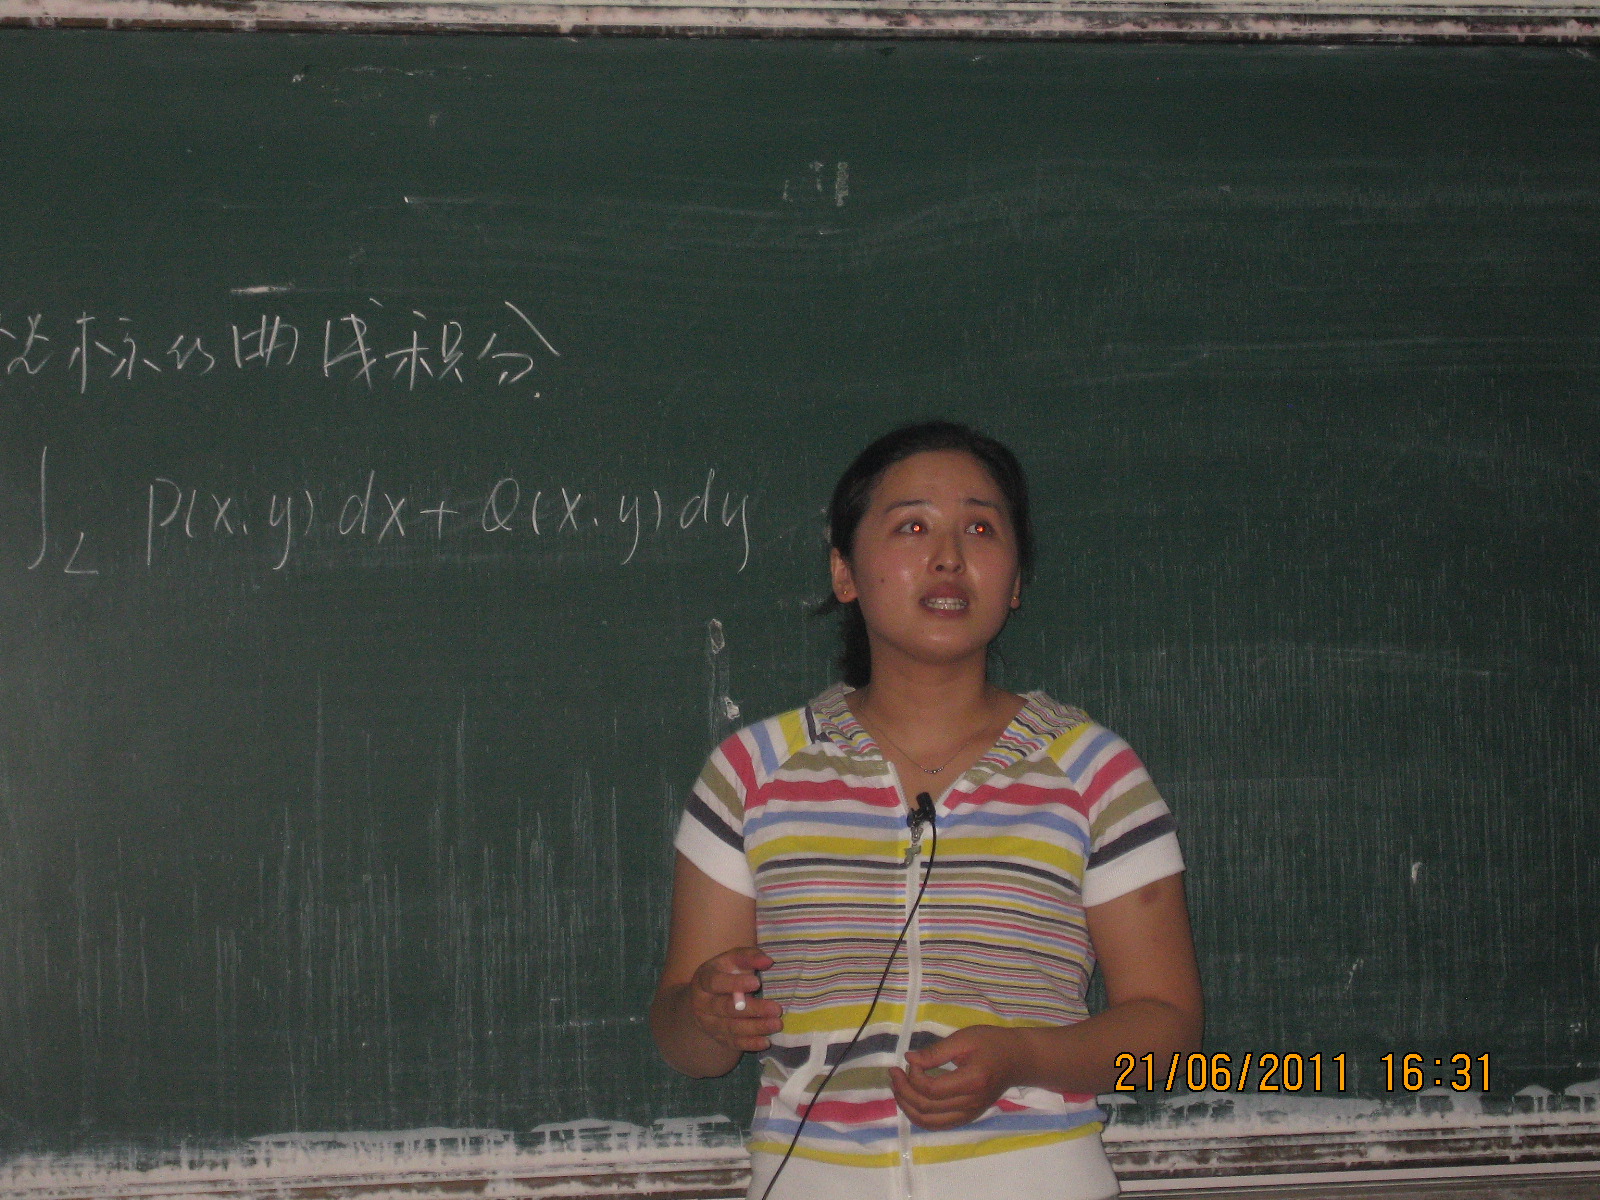 坐标的曲线积分
∫_L P(x,y)dx+Q(x,y)dy
21/06/2011 16:31